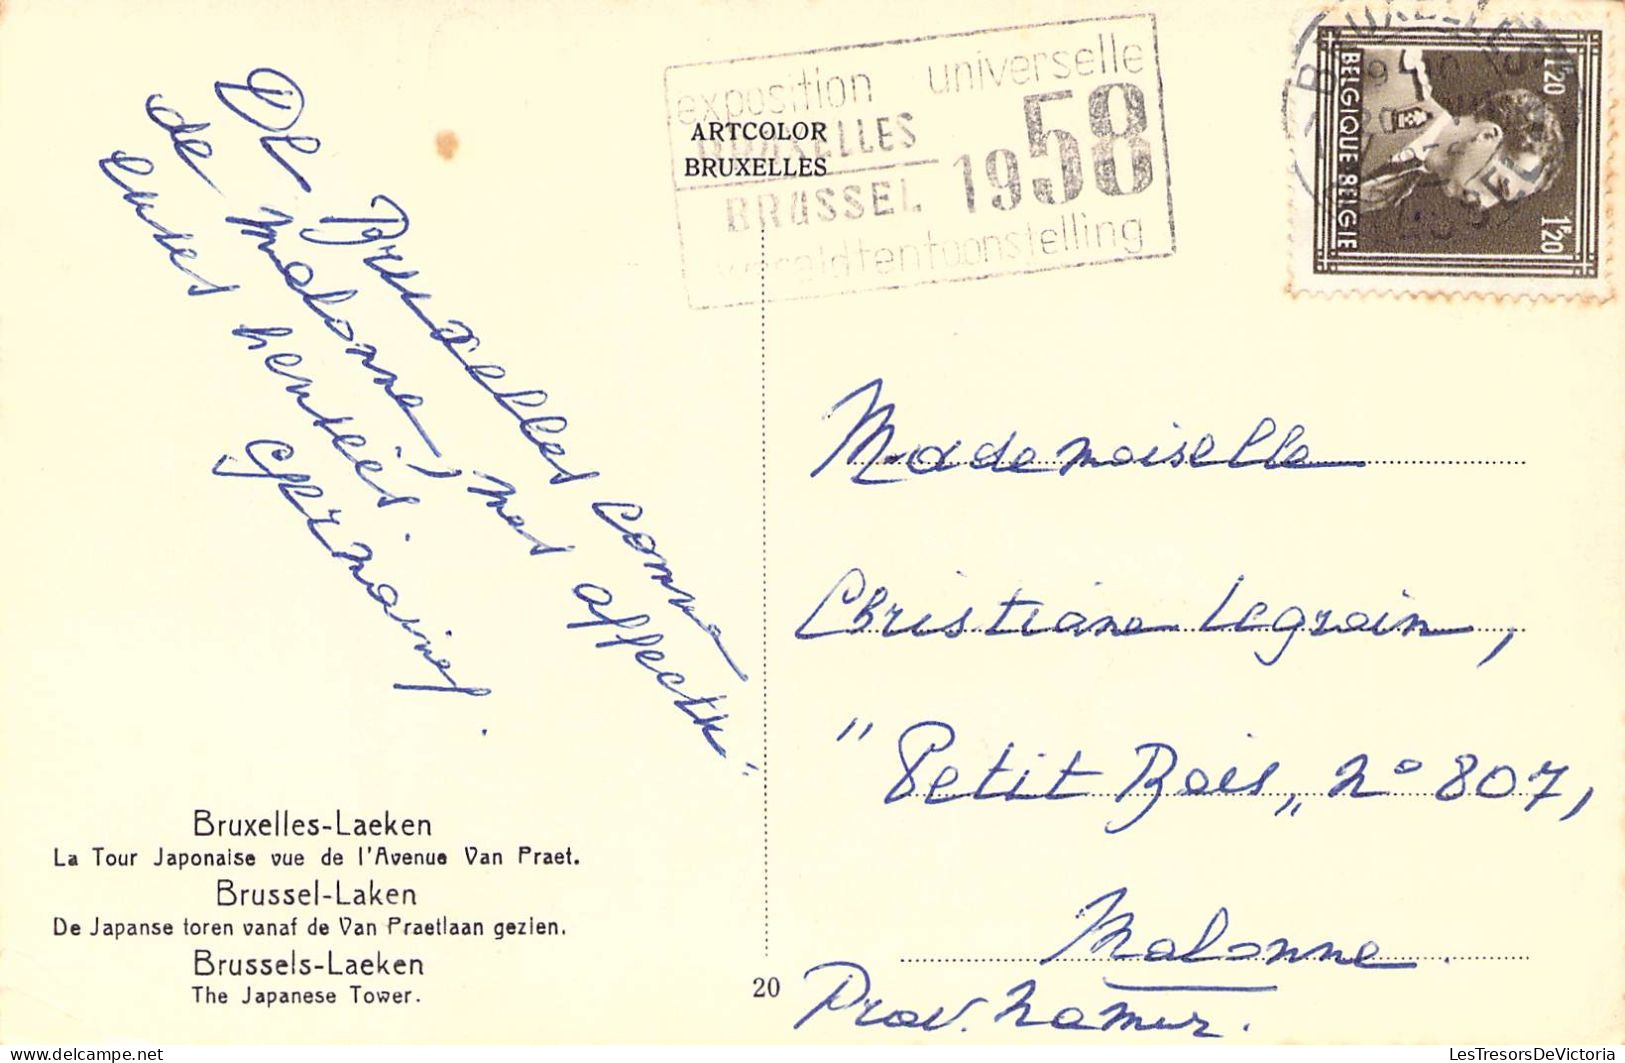 De Bruxelles comme
de Malonne, mes affectu-
euses pensées.
Germaine.
Bruxelles-Laeken
La Tour Japonaise vue de l'Avenue Van Praet.
Brussel-Laken
De Japanse toren vanaf de Van Praetlaan gezien.
Brussels-Laeken
The Japanese Tower.
ARTCOLOR
BRUXELLES
20
exposition universelle
BRUXELLES
BRUSSEL 1958
wereldtentoonstelling
BELGIQUE BELGIE
1F20
1F20
Mademoiselle
Christiane Legrain,
"Petit Bois" n° 807,
Malonne.
Prov. Namur.
LesTresorsDeVictoria
https://www.delcampe.net